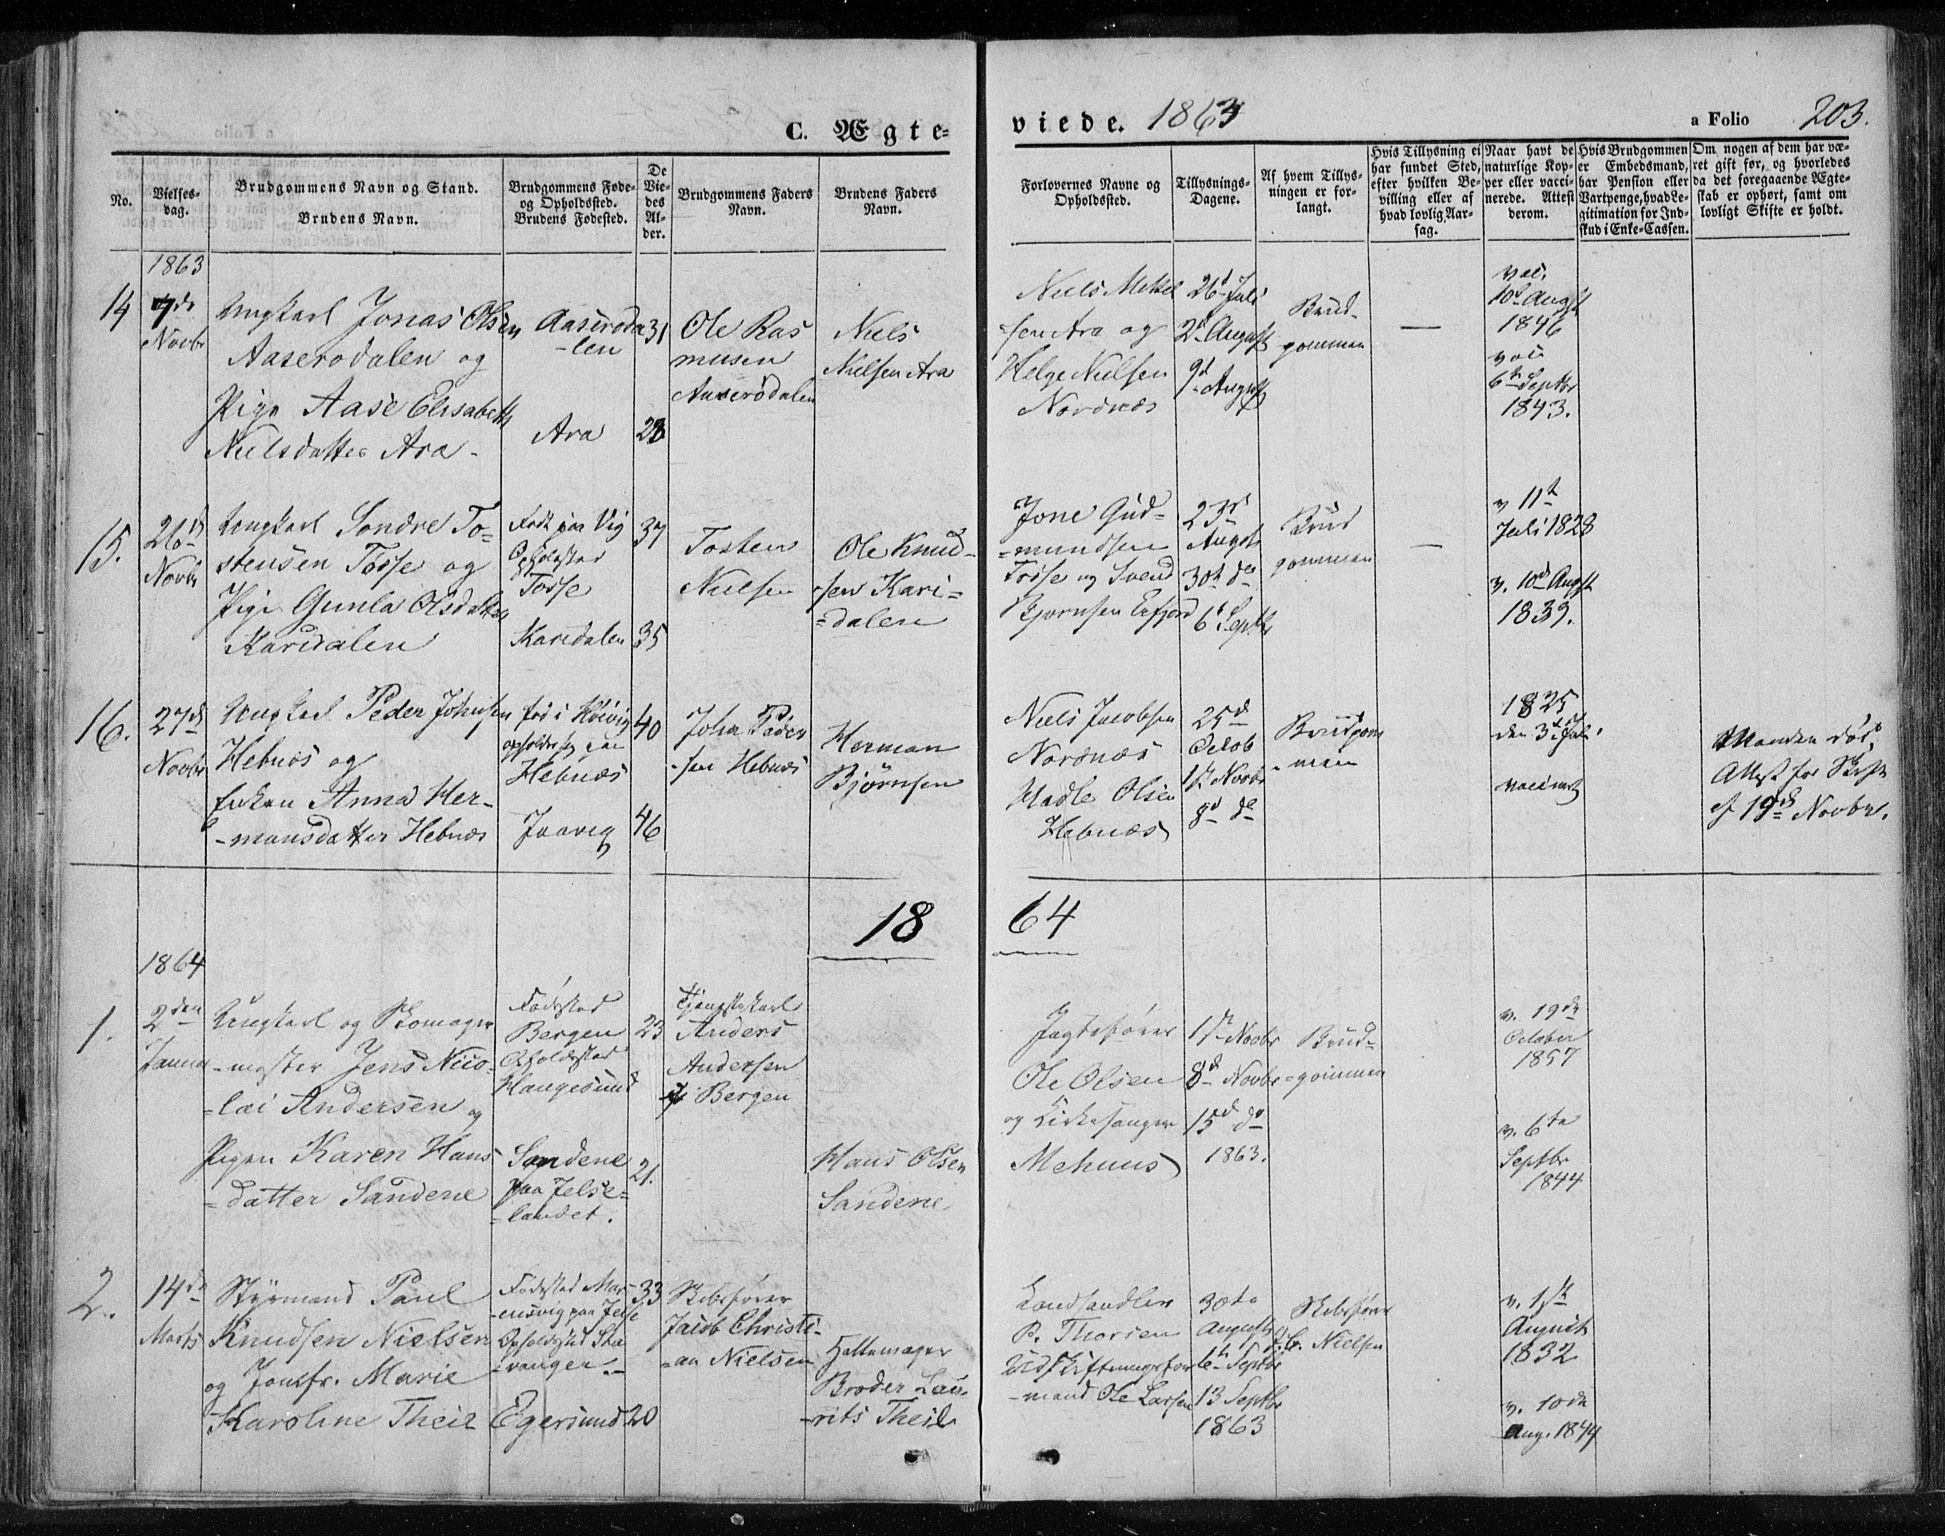 C. Ægte-
viede. 1863
a Folio 203.
No.
Vielses-
dag.
Brudgommens Navn og Stand.
Brudens Navn.
Brudgommens Føde-
og Opholdssted.
Brudens Fødested.
De
Vie-
des
Al-
der.
Brudgommens Faders
Navn.
Brudens Faders
Navn.
Forlovernes Navne og
Opholdssted.
Tillysnings-
Dagene.
Af hvem Tillys-
ningen er for-
langt.
Hvis Tillysning ei
har fundet Sted,
efter hvilken Be-
villing eller af
hvad lovlig Aar-
sag.
Naar havt de
naturlige Kop-
per eller vacci-
nerede. Attest
derom.
Hvis Brudgommen
er Embedsmand,
har Pension eller
Vartpenge, hvad Le-
gitimation for Ind-
skud i Enke-Cassen.
Om nogen af dem har væ-
ret gift før, og hvorledes
da det foregaaende Ægte-
skab er ophørt, samt om
lovligt Skifte er holdt.
1863
14
7de
Novbr
Ungkarl Jonas Olsen
Aaserødalen og
Pige Aase Elisabeth
Nielsdatter Ara
Aaseröda
-len
Ara
31
28
Ole Ras
musen
Aaserödalen
Niels
Nielsen Ara
Niels Mikel
-sen Ara og
Helge Nielsen
Nordnæs
26d Juli
2d August
9d August
Brud-
gommen
—
vac.
10d Augst
1846
vac
6te Septbr
1843.
15.
26de
Novbr
Ungkarl Sondre To-
stensen Tosse og
Pige Gunla Olsdatter
Karidalen
Født paa Vig
Opholdssted
Tosse
Karidalen
37
35
Tosten
Nielsen
Ole Knud-
-sen Kari-
-dalen
Jone Gud-
-mundsen
Tosse og Svend
Bjørnsen Erfjord
23d
Augst
30te do
6t Septbr
Brud
gommen
—
v 11te
Juli 1828
v. 10de Augst
1839.
16.
27de
Novbr
Ungkarl Peder Johnsen
Hebnæs og
Enken Anna Her-
-mansdatter Hebnæs
fød i Höivig
opholder sig paa
Hebnæs
Jaavig
40
46
John Peder
-sen Hebnæs
Herman
Bjørnsen
Niels Jacobsen
Nordnæs
Hadle Olsen
Hebnæs
25d
Octob
1ste Novbr
8d do
Brudgom
-men
1825
den 3die Juli
vaccineret
Manden død,
Attest for Skifte
af 19de Novbr.
1864
1864
1.
2den
Januar
Ungkarl og Skomager
-mester Jens Nico-
-lai Andersen og
Pigen Karen Hans
-datter Sandene
Fødested
Bergen
Opholdssted
Haugesund
Sandene
paa Jelse-
-landet.
23
21.
Tjenestekarl
Anders
Andersen
i Bergen
Hans Olsen
Sandene
Jagtefører
Ole Olsen
og Kirkesanger
Mehuus
1ste Novbr
8d Novbr
15d do
1863.
Brud-
-gommen
v. 19de
October
1857
v. 6te
Septbr
1844
2.
14de
Marts
Styrmand Paul
Knudsen Nielsen
og Jomfr. Marie
Karoline Theil
Fødested Mar-
-ensvig paa Jelse
Opholdssted Sta
-vanger
Egersund
33
20
Skibsfører
Jacob Christi-
-an Nielsen
Hattemager
Broder Lau-
-rits Theil
Landhandler
P. Thorsen
Udskiftningsfor
-mand Ole Larsen
30te
August
6te Septbr
13 Septbr
1863
Skibsfører
J. C. Nielsen
v. 1ste
August
1832
v. 10de
Aug. 1844